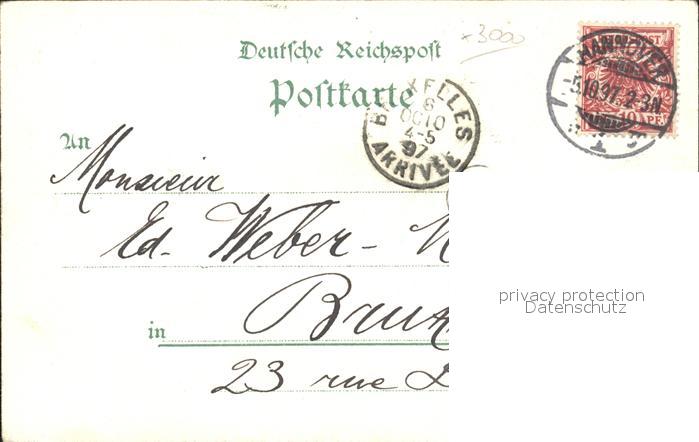 3000
Deutsche Reichspost
Postkarte
HANNOVER
5.10.97. 2-3N
10
BRUXELLES
6
OCTO
4-5
97
ARRIVÉE
An
Monsieur
Ed. Weber-
in
23 rue
privacy protection
Datenschutz